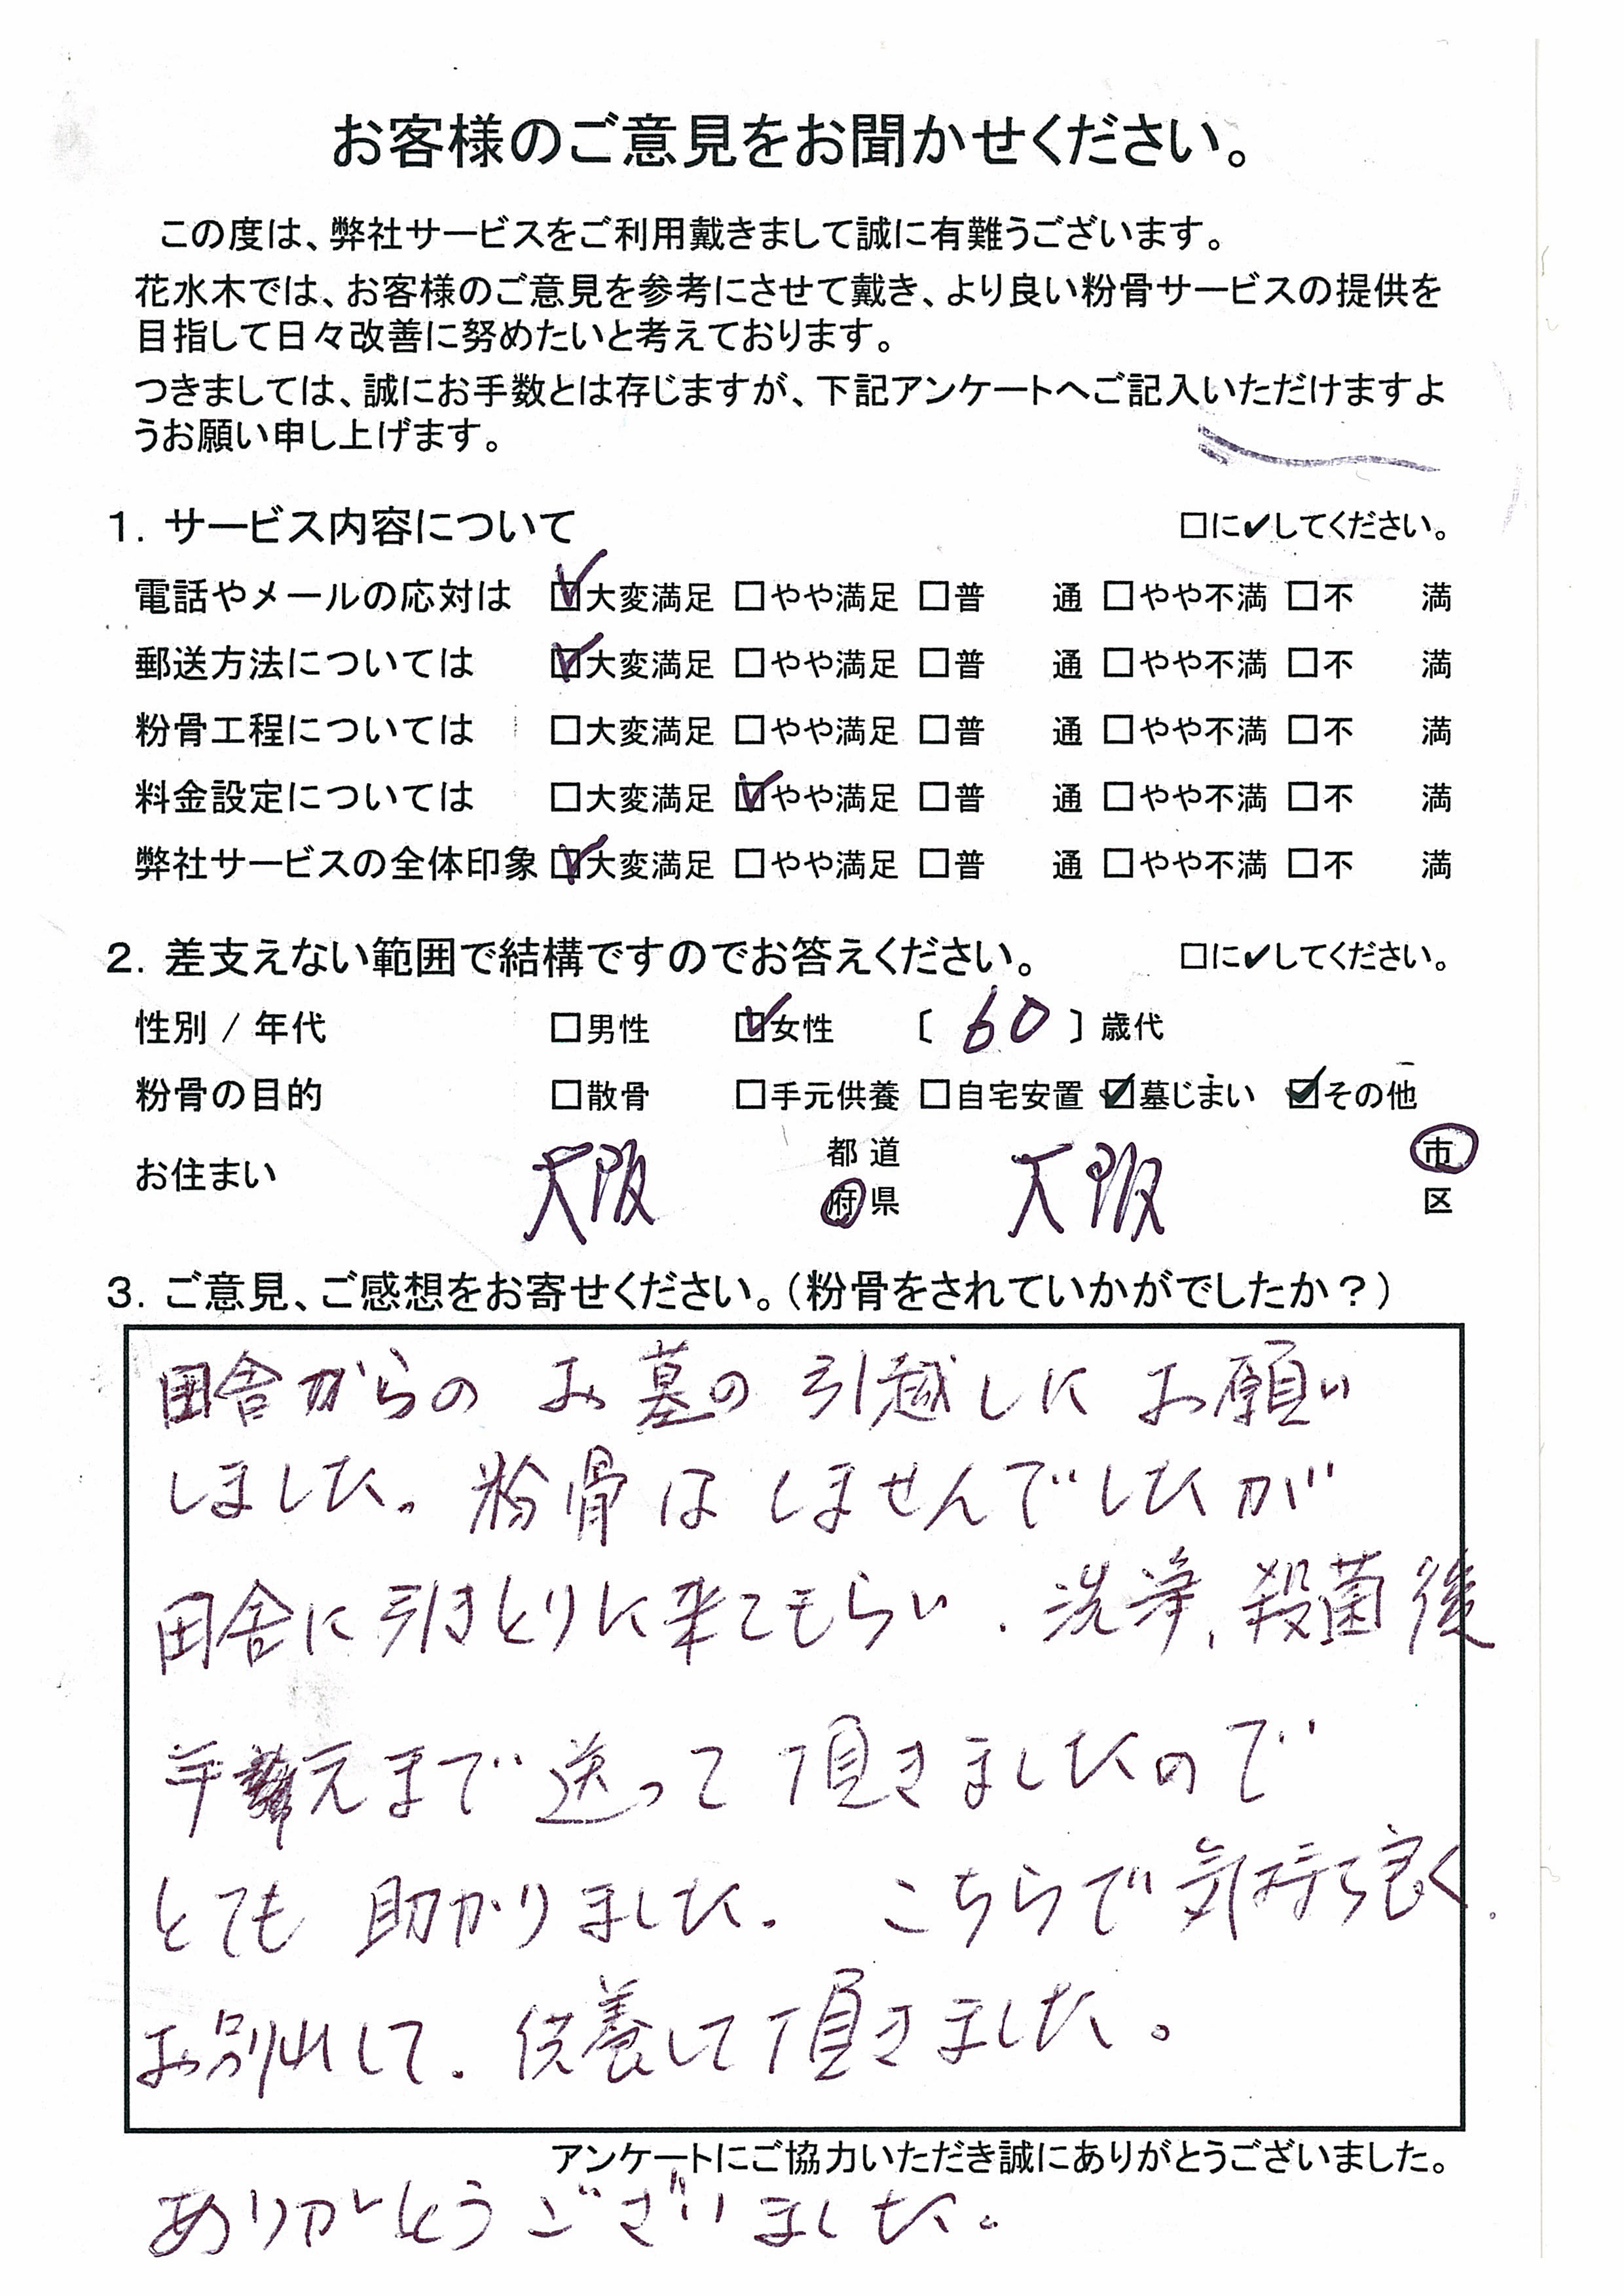 お客様のご意見をお聞かせください。
この度は、弊社サービスをご利用戴きまして誠に有難うございます。
花水木では、お客様のご意見を参考にさせて戴き、より良い粉骨サービスの提供を
目指して日々改善に努めたいと考えております。
つきましては、誠にお手数とは存じますが、下記アンケートへご記入いただけますよ
うお願い申し上げます。
1. サービス内容について □に✔してください。
電話やメールの応対は ☑大変満足 □やや満足 □普 通 □やや不満 □不 満
郵送方法については ☑大変満足 □やや満足 □普 通 □やや不満 □不 満
粉骨工程については □大変満足 □やや満足 □普 通 □やや不満 □不 満
料金設定については □大変満足 ☑やや満足 □普 通 □やや不満 □不 満
弊社サービスの全体印象 ☑大変満足 □やや満足 □普 通 □やや不満 □不 満
2. 差支えない範囲で結構ですのでお答えください。 □に✔してください。
性別 / 年代 □男性 ☑女性 〔 60 〕歳代
粉骨の目的 □散骨 □手元供養 □自宅安置 ☑墓じまい ☑その他
お住まい 大阪 都道府県 大阪 市区
3. ご意見、ご感想をお寄せください。(粉骨をされていかがでしたか?)
田舎からの お墓の 引越しに お願い
しました。粉骨は しませんでしたが
田舎に引きとりに来てもらい、洗浄、殺菌後
手元まで送って頂きましたので
とても 助かりました。 こちらで気持ち良く、
お別れして、供養して頂きました。
アンケートにご協力いただき誠にありがとうございました。
ありがとうございました。